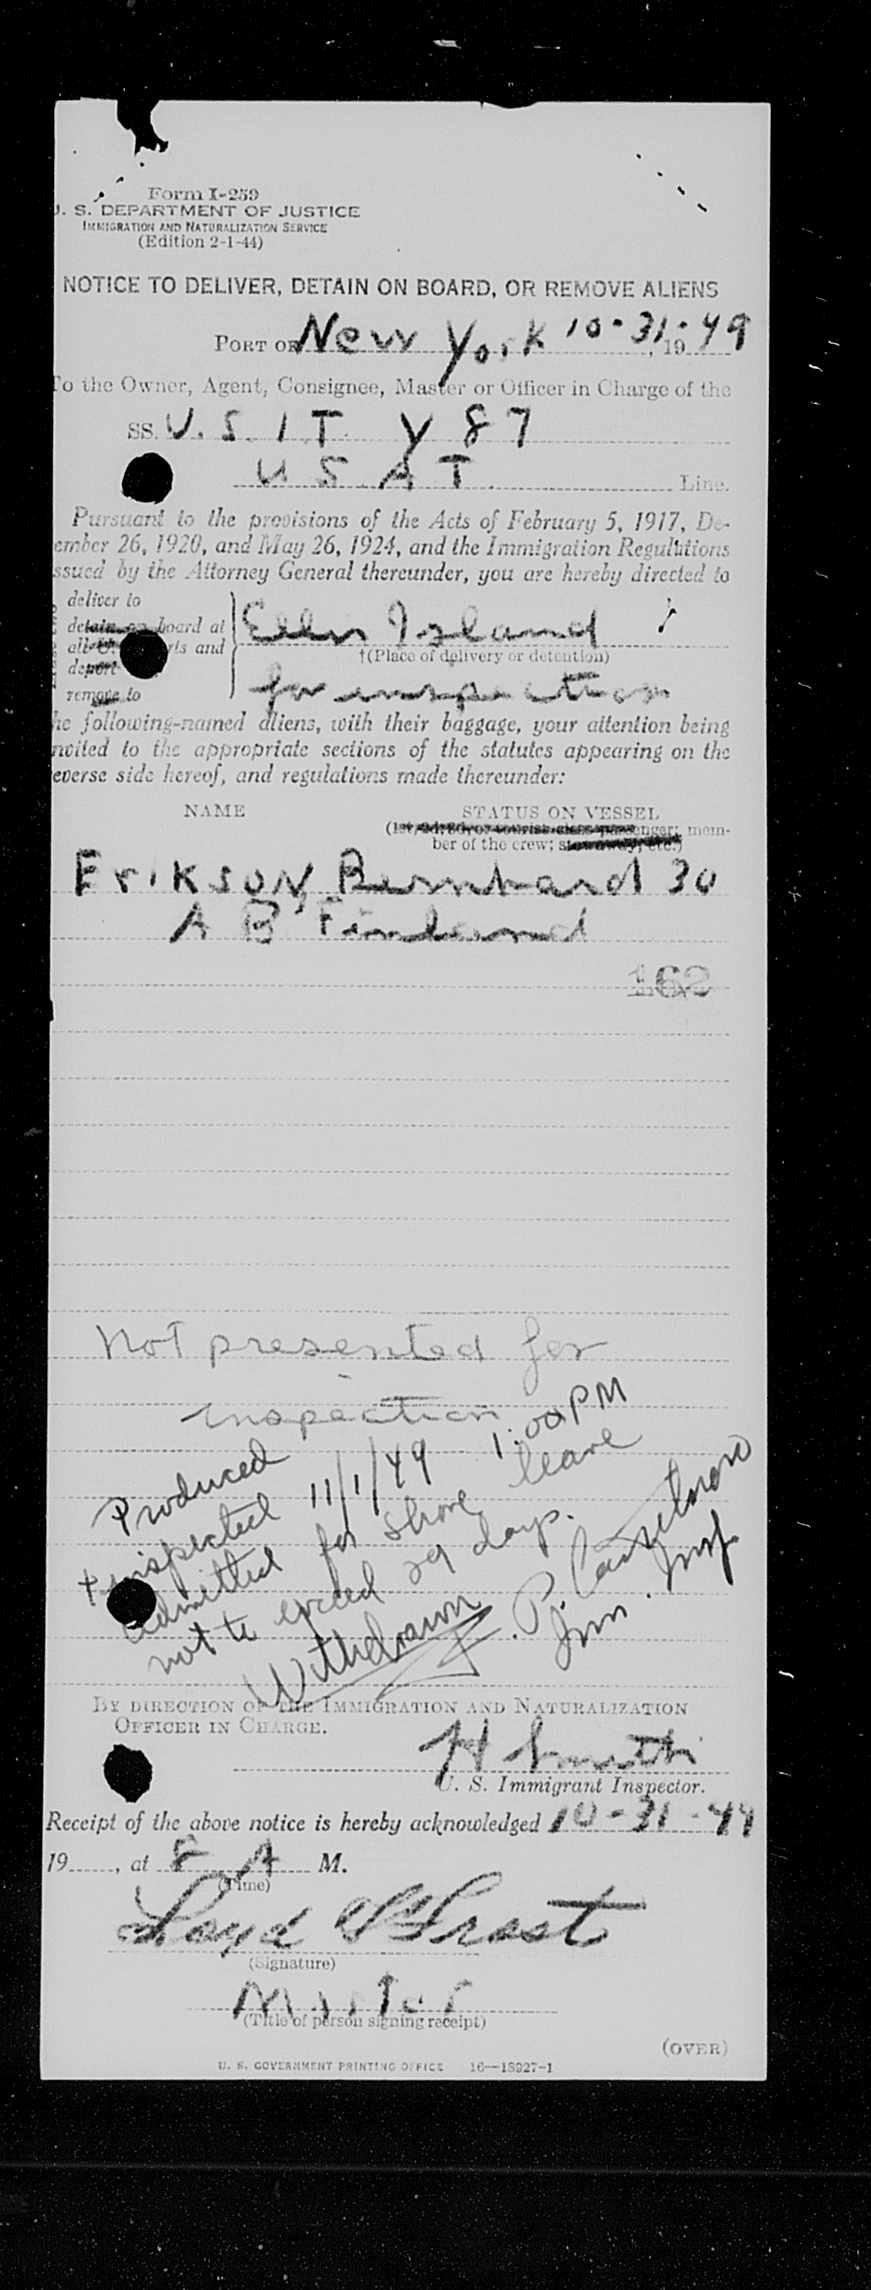 Form I-259
U. S. DEPARTMENT OF JUSTICE
IMMIGRATION AND NATURALIZATION SERVICE
(Edition 2-1-44)
NOTICE TO DELIVER, DETAIN ON BOARD, OR REMOVE ALIENS
PORT OF New York 10-31-, 1949
To the Owner, Agent, Consignee, Master or Officer in Charge of the
SS. U. S. 1 T Y 87
U S A T Line.
Pursuant to the provisions of the Acts of February 5, 1917, De-
ember 26, 1920, and May 26, 1924, and the Immigration Regulations
ssued by the Attorney General thereunder, you are hereby directed to
deliver to
detain on board at Ellis Island
all U. rts and
†(Place of delivery or detention)
deport
remove to for inspection
he following-named aliens, with their baggage, your attention being
nvited to the appropriate sections of the statutes appearing on the
everse side hereof, and regulations made thereunder:
NAME STATUS ON VESSEL
(1st, 2d, 3d, or tourist class passenger; mem-
ber of the crew; stowaway, etc.)
Erikson, Bernhard 30
A B Finland
162
Not presented for
inspection
Produced
+ inspected 11/1/49 1:00 PM
admitted for shore leave
not to exceed 29 days.
Withdrawn P.
Imm. Insp.
BY DIRECTION OF THE IMMIGRATION AND NATURALIZATION
OFFICER IN CHARGE.
H Smith
U. S. Immigrant Inspector.
Receipt of the above notice is hereby acknowledged 10-31-49
19......, at 8 A M.
(Time)
Loyd
(Signature)
Master
(Title of person signing receipt)
(OVER)
U. S. GOVERNMENT PRINTING OFFICE 16—18927-1